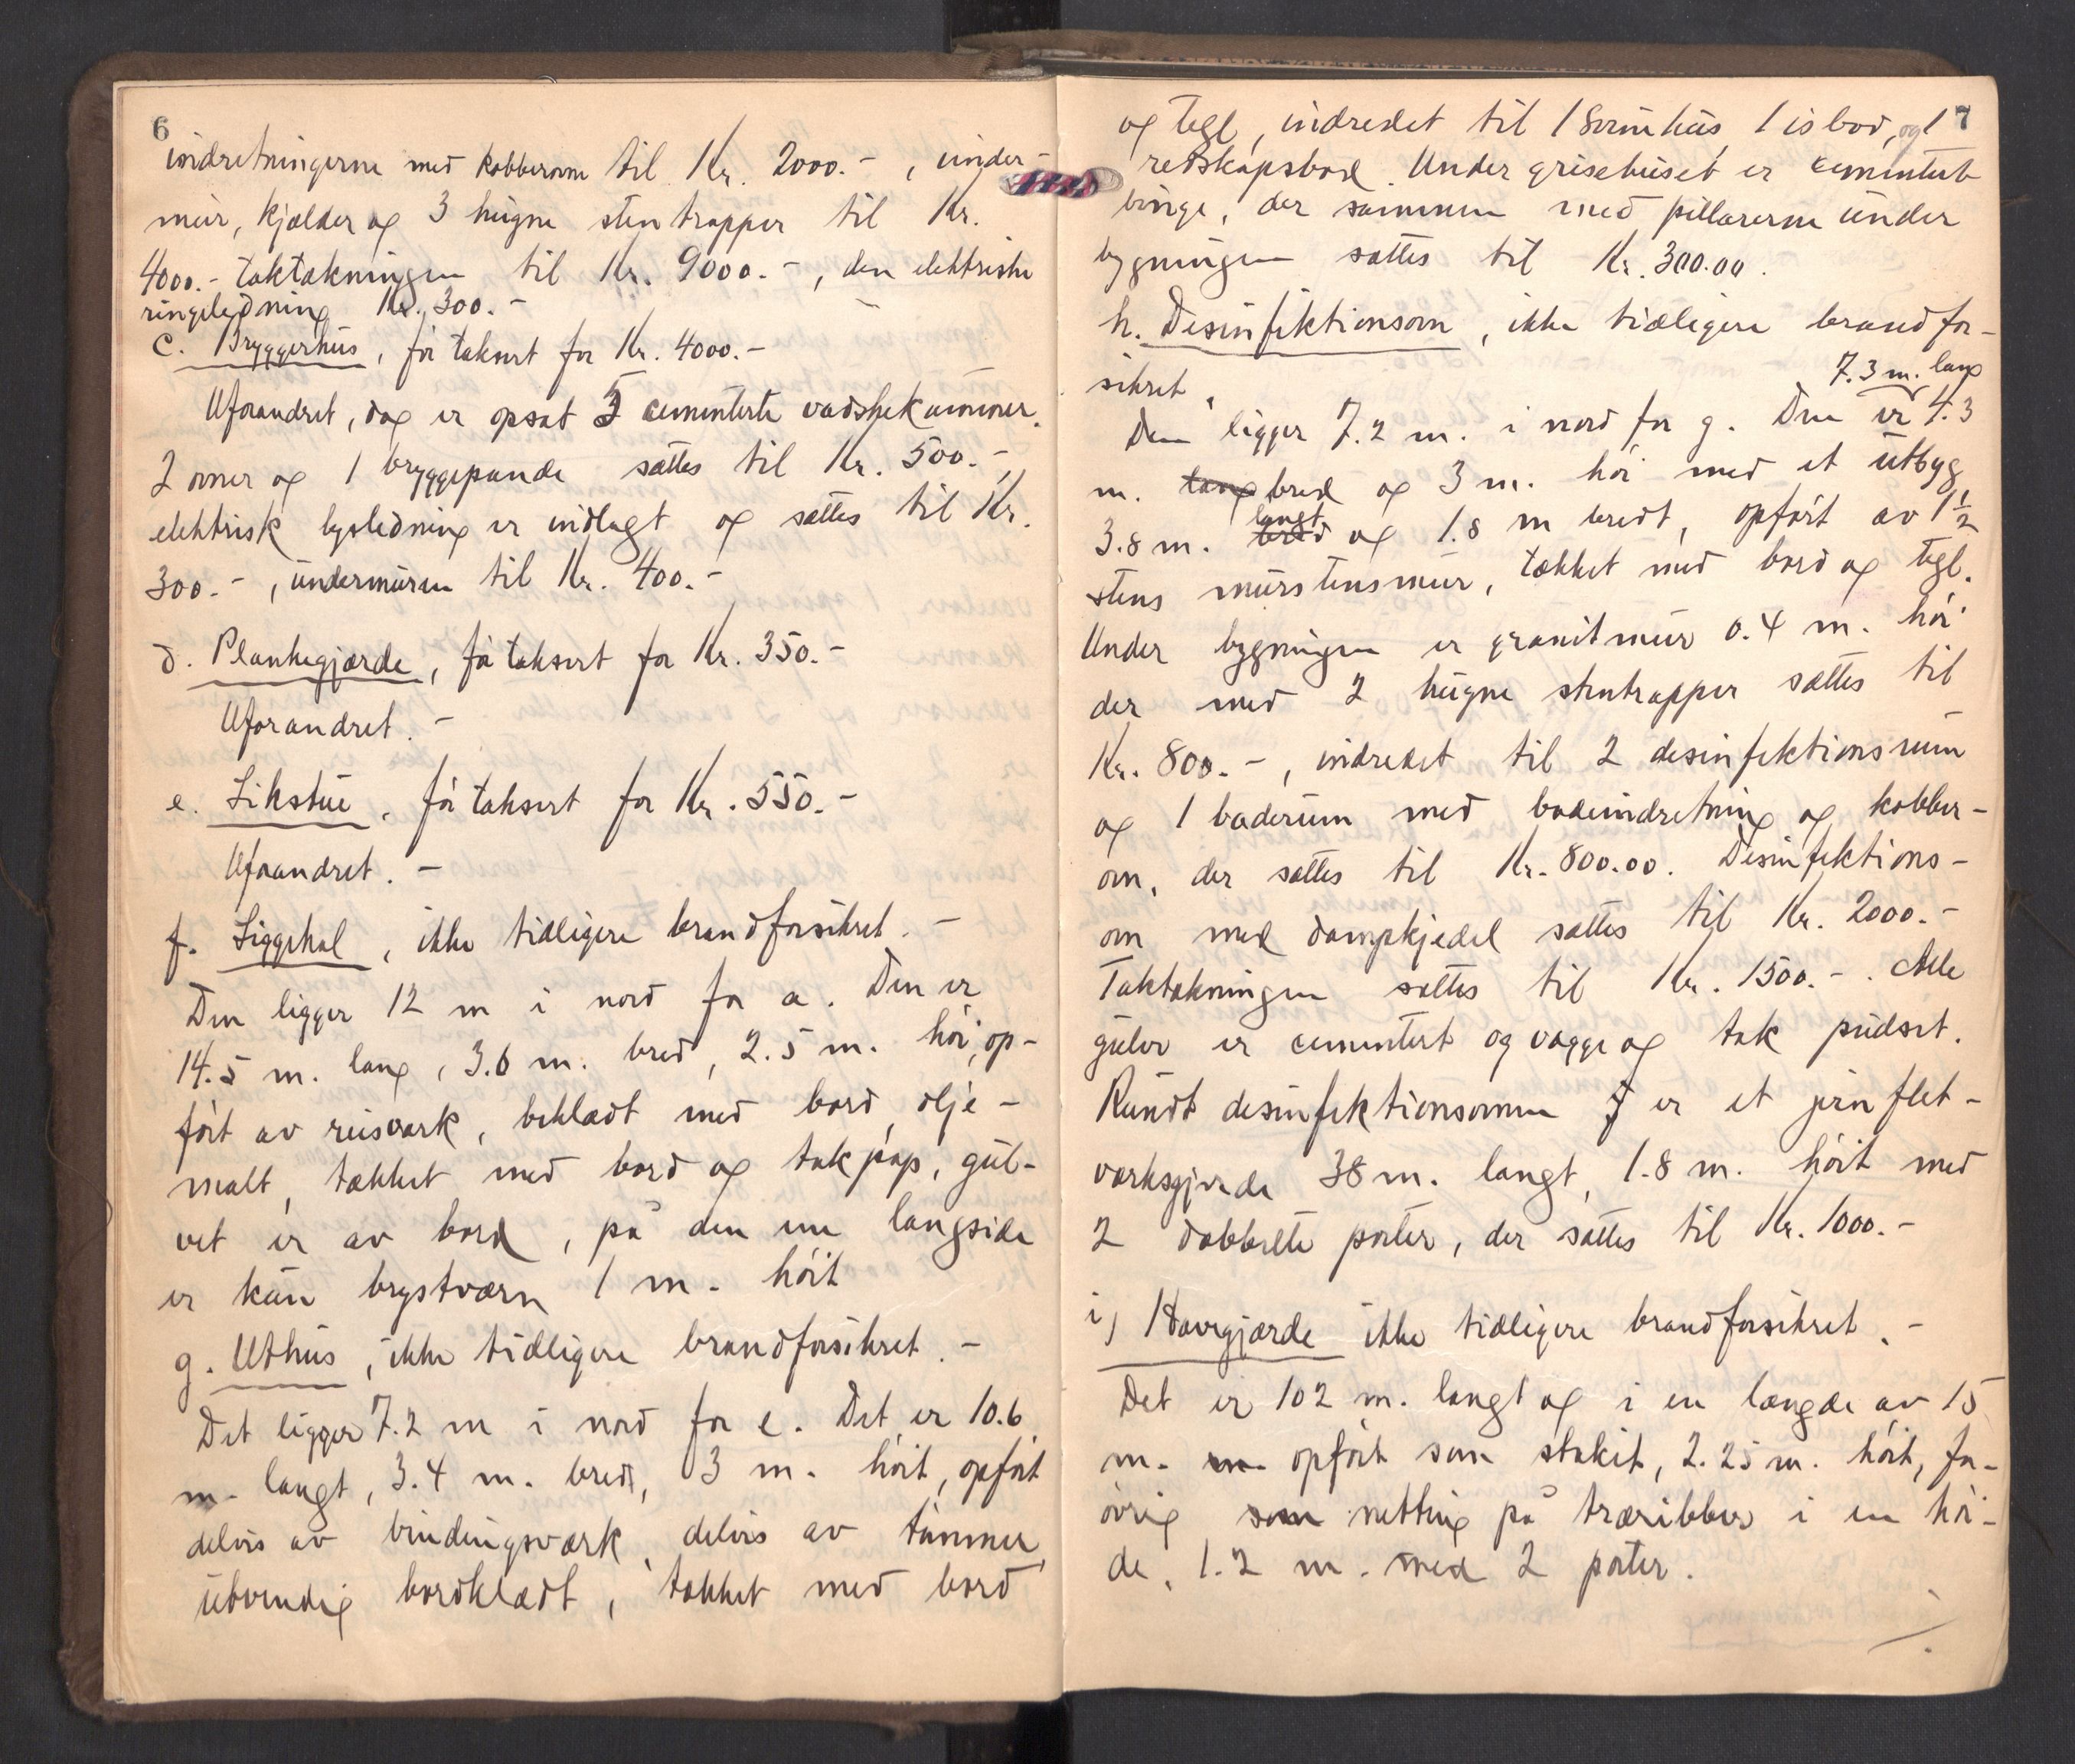 6
indretningerne med kobberovne til Kr. 2000.-, under-
mur, kjælder og 3 hugne stentrapper til Kr.
4000.- taktækningen til Kr. 9000.-, den elektriske
ringeledning Kr. 300.-
c. Bryggerhus, før taksert for Kr. 4000.-
Uforandret, dog er opsat 5 cementerte vadskekummer.
2 ovner og 1 bryggepande sættes til Kr. 500.-,
elektrisk lysledning er indlagt og sættes til Kr.
300.-, undermuren til Kr. 400.-
d. Plankegjærde, før taksert for Kr. 350.-
Uforandret. -
e. Likstue, før taksert for Kr. 550.-
Uforandret. -
f. Liggehal, ikke tidligere brandforsikret. -
Den ligger 12 m i nord for a. Den er
14.5 m. lang, 3.6 m. bred, 2.5 m. høi, op-
ført av reisverk, beklædt med bord, olje-
malt, tækket med bord og takpap, gul-
vet er av bord, på den ene langside
er kun brystværn 1 m. høit
g. Uthus, ikke tidligere brandforsikret. -
Det ligger 7.2 m i nord for e. Det er 10.6
m. langt, 3.4 m. bredt, 3 m. høit, opført
delvis av bindingsværk, delvis av tømmer,
utvendig bordklædt, tækket med bord
7
og tegl, indredet til 1 Svinehus, 1 isbod, og 1
redskapsbod. Under grisehuset er cementert
binge, der sammen med pillarerne under
bygningen sættes til Kr. 300.00.
h. Desinfektionsovn, ikke tidligere brandfor-
sikret.
7.3 m. lang
Den ligger 7.2 m. i nord for g. Den er 4.3
m. lang bred og 3 m. høi med et utbyg
langt
3.8 m. bred og 1.8 m bredt, opført av 1 1/2
stens murstensmur, tækket med bord og tegl.
Under bygningen er granitmur 0.4 m. høi
der med 2 hugne stentrapper sættes til
Kr. 800.-, indredet til 2 desinfektionsrum
og 1 baderum med badeindretning og kobber-
ovn, der sættes til Kr. 800.00. Desinfektions-
ovn med dampkjedel sættes til Kr. 2000.-
Taktækningen sættes til Kr. 1500.-. Alle
gulve er cementert og vægge og tak pudset.
Rundt desinfektionsovnen er et jernflet-
verksgjerde 38 m. langt, 1.8 m. høit med
2 dobbelte porter, der sættes til Kr. 1000.-
i) Havegjærde ikke tidligere brandforsikret. -
Det er 102 m. langt og i en længde av 15
m. m. opført som stakit, 2.25 m. høit, for-
øvrig som netting på træribber i en høi-
de, 1.2 m. med 2 porter.